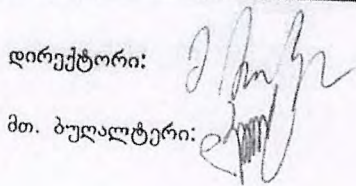 დირექტორი:
მთ. ბუღალტერი: